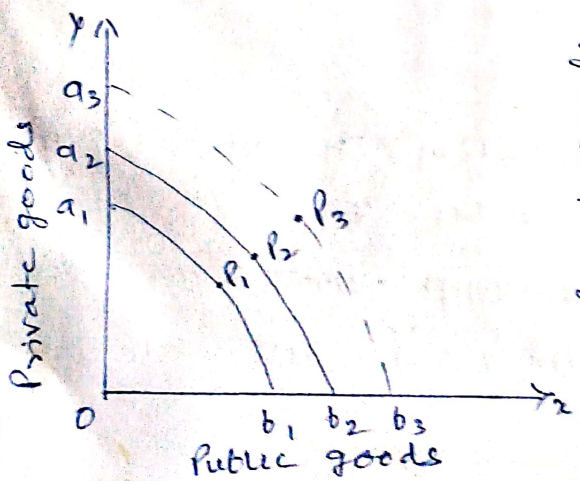 y
a3
a2
a1
Private goods
P1
P2
P3
0
b1 b2 b3
x
Public goods